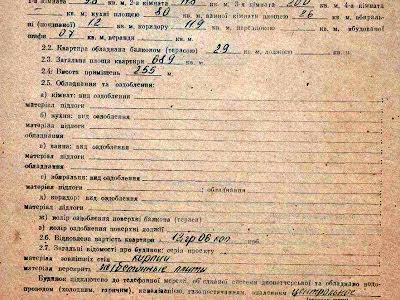 1-а кімната кв. м, 2-а кімната кв. м, 3-я кімната 20,0 кв. м, 4-а кімната
кв. м, кухні площею 8,0 кв. м, ванної кімнати площею 2,6 кв. м, вбираль-
ні (поєднаної) 1,2 кв. м, коридору 11,9 кв. м, передпокою кв. м, вбудованої
шафи 0,7 кв. м, веранди кв. м.
2.2. Квартира обладнана балконом (терасою) 2,9 кв. м, лоджією кв. м.
2.3. Загальна площа квартири 68,9 кв. м.
2.4. Висота приміщень 2,55 м.
2.5. Обладнання та оздоблення:
а) кімнат: вид оздоблення
матеріал підлоги
б) кухні: вид оздоблення
матеріал підлоги
обладнання
в) ванна: вид оздоблення
матеріал підлоги
обладнання
г) вбиральня: вид оздоблення
матеріал підлоги обладнання
д) коридор: вид оздоблення
матеріал підлоги
ж) колір оздоблення поверхні балкона (тераси)
з) колір оздоблення поверхні лоджії
2.6. Відновлена вартість квартири крб.
2.7. Загальні відомості про будинок: серія проекту
матеріал зовнішніх стін кирпич
матеріал перекриття плиты
Будинок підключено до телефонної мережі, обладнано водо-
проводом (холодним, гарячим), каналізацією, газопостачанням, опаленням центральное